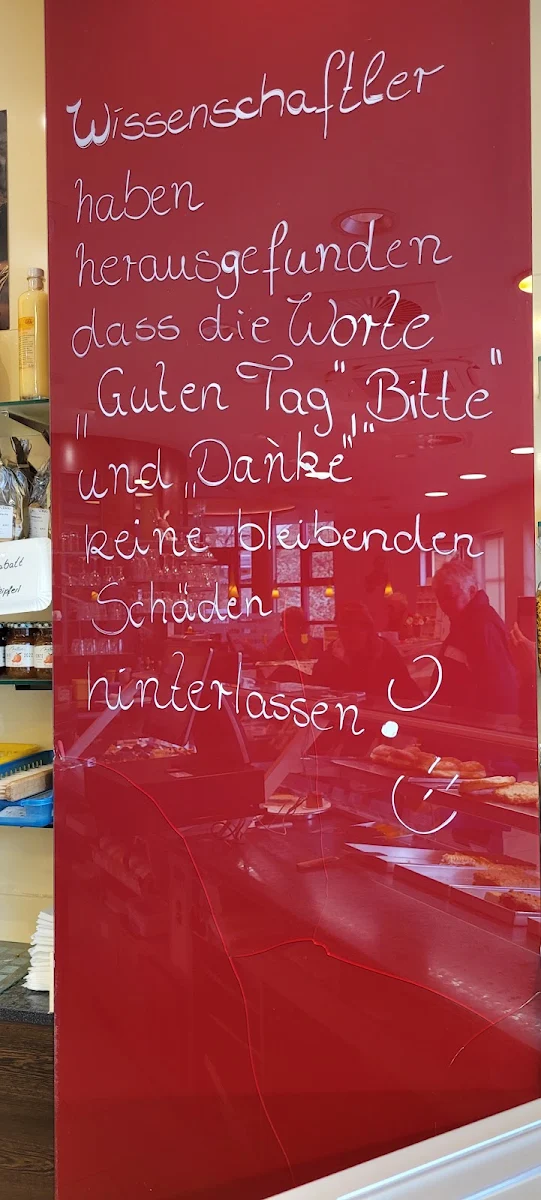 Wissenschaftler
haben
herausgefunden
dass die Worte
„Guten Tag", „Bitte"
und „Danke"
keine bleibenden
Schäden
hinterlassen.